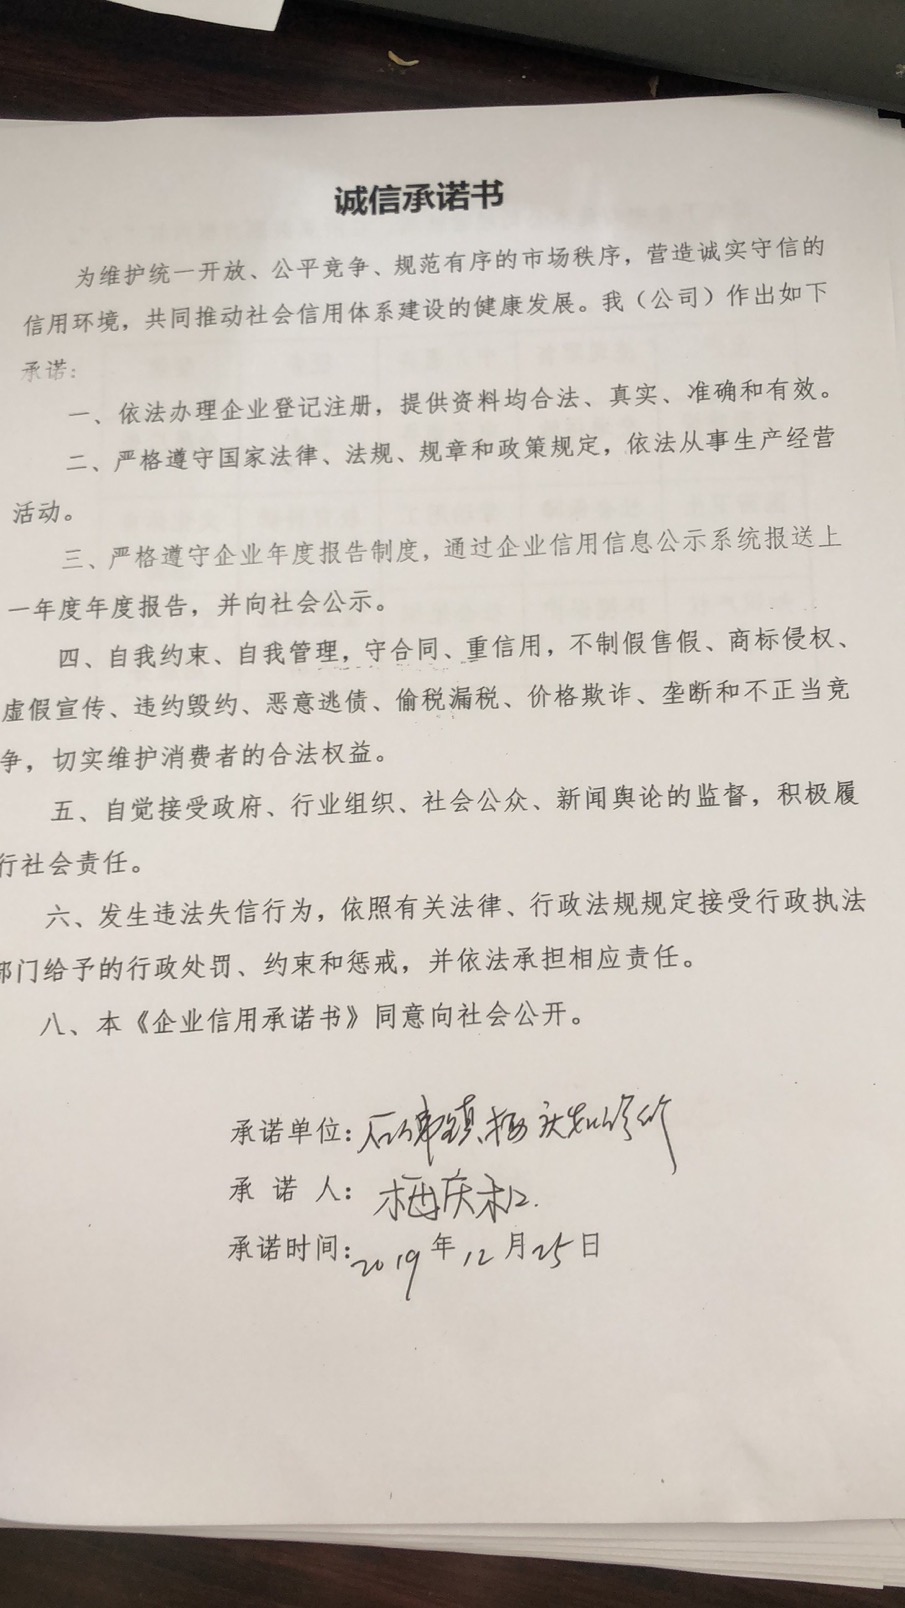 诚信承诺书
为维护统一开放、公平竞争、规范有序的市场秩序，营造诚实守信的
信用环境，共同推动社会信用体系建设的健康发展。我（公司）作出如下
承诺：
一、依法办理企业登记注册，提供资料均合法、真实、准确和有效。
二、严格遵守国家法律、法规、规章和政策规定，依法从事生产经营
活动。
三、严格遵守企业年度报告制度，通过企业信用信息公示系统报送上
一年度年度报告，并向社会公示。
四、自我约束、自我管理，守合同、重信用，不制假售假、商标侵权、
虚假宣传、违约毁约、恶意逃债、偷税漏税、价格欺诈、垄断和不正当竞
争，切实维护消费者的合法权益。
五、自觉接受政府、行业组织、社会公众、新闻舆论的监督，积极履
行社会责任。
六、发生违法失信行为，依照有关法律、行政法规规定接受行政执法
部门给予的行政处罚、约束和惩戒，并依法承担相应责任。
八、本《企业信用承诺书》同意向社会公开。
承诺单位：石佛镇梅庆
承 诺 人：梅庆
承诺时间：2019年12月25日